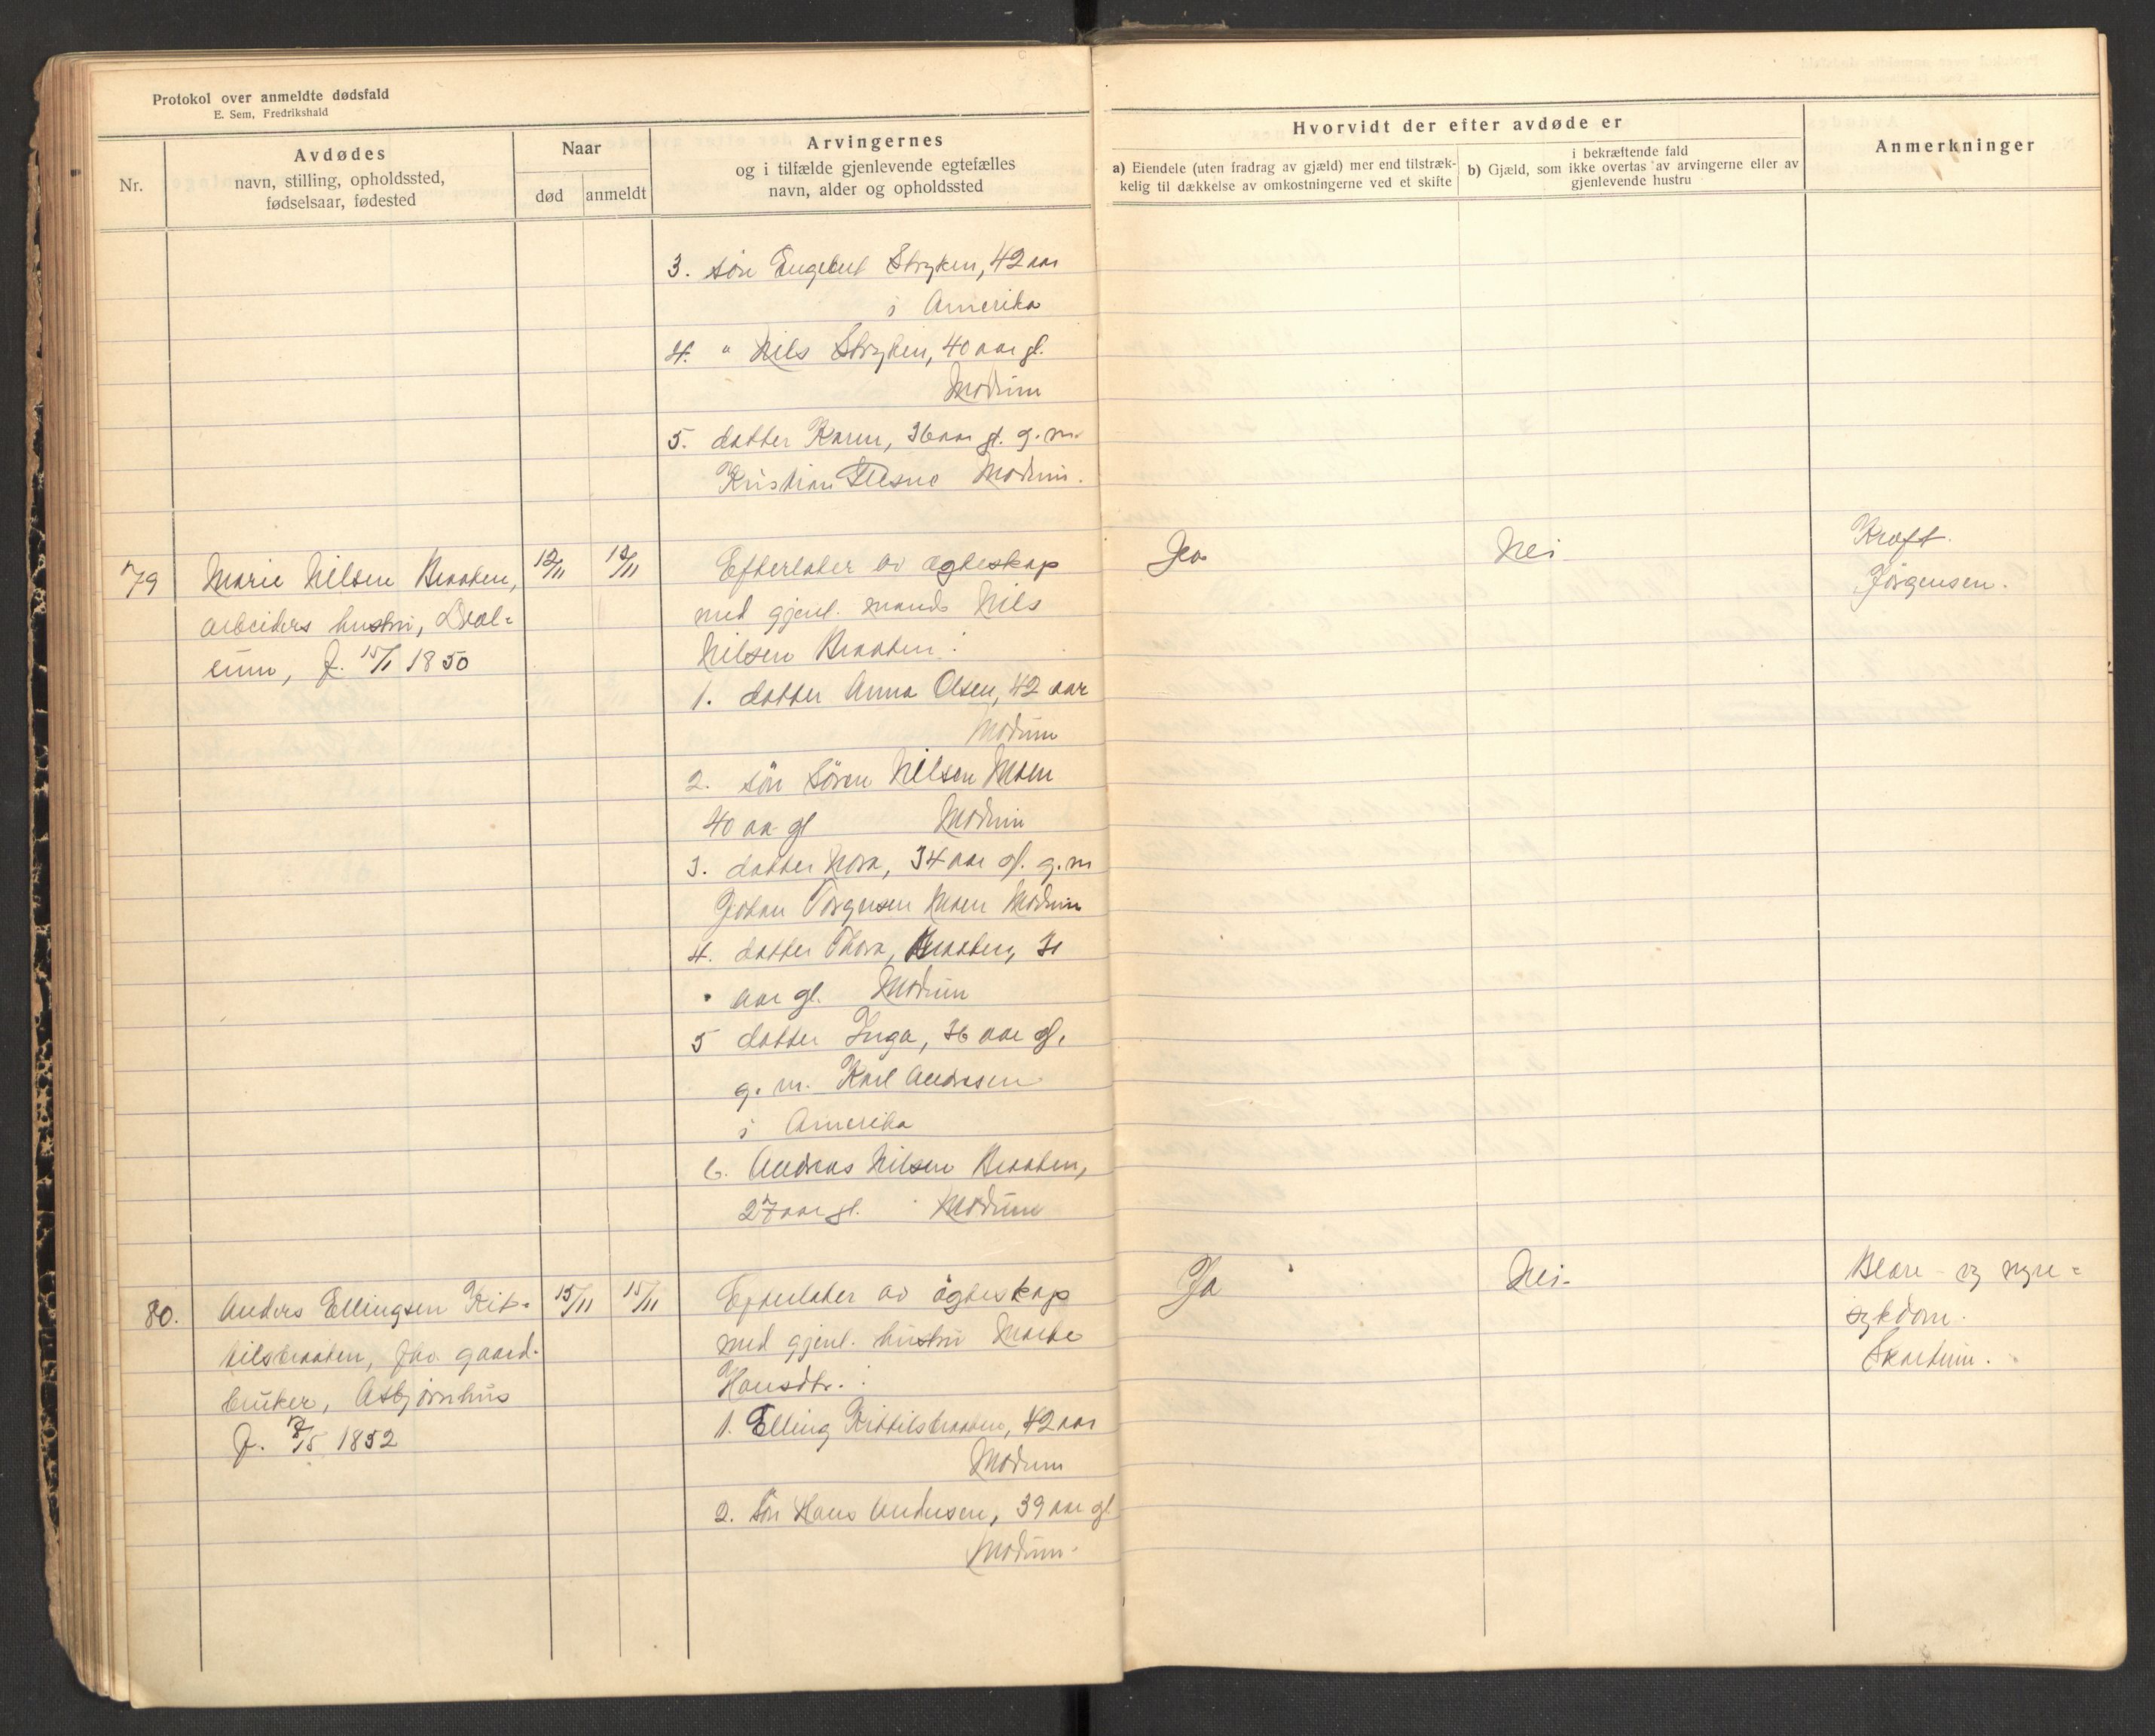 Protokol over anmeldte dødsfald
E. Sem, Fredrikshald
Nr.
Avdødes
navn, stilling, opholdssted,
fødselsaar, fødested
Naar
død
anmeldt
Arvingernes
og i tilfælde gjenlevende egtefælles
navn, alder og opholdssted
Hvorvidt der efter avdøde er
a) Eiendele (uten fradrag av gjæld) mer end tilstræk-
kelig til dækkelse av omkostningerne ved et skifte
i bekræftende fald
b) Gjæld, som ikke overtas av arvingerne eller av
gjenlevende hustru
Anmerkninger
3. søn Engebret Stryken, 42 aar
i Amerika
4. " Nils Stryken, 40 aar gl.
Modum
5. datter Karen, 36 aar gl. g. m.
Kristian Modum.
79
Marie Nilsen Braaten,
arbeiders hustru,
f. 15/1 1850
12/11
13/11
Efterlater av ægteskap
med gjenl. mand Nils
Nilsen Braaten:
1. datter Anna Olsen, 42 aar
Modum
2. søn Søren Nilsen Moen
40 aar gl Modum
3. datter Nora, 34 aar gl. g. m
Johan Torgersen Moen Modum
4. datter Thora, Braaten, 31
aar gl. Modum
5 datter Inga, 36 aar gl.
g. m. Karl Andresen
i Amerika
6. Andreas Nilsen Braaten,
27 aar gl. Modum
Ja
Nei
Kræft.
Jørgensen.
80.
Anders Ellingsen Kit-
tilsbraaten, fhv. gaard-
bruker, Asbjørnhus
f. 7/5 1852
15/11
15/11
Efterlater av ægteskap
med gjenl. hustru Marte
Hansdtr.:
1. Elling Kittilsbraaten, 42 aar
Modum
2. søn Hans Andersen, 39 aar gl.
Modum.
Ja
Nei-
Blære- og nyre-
sykdom.
Skartum.